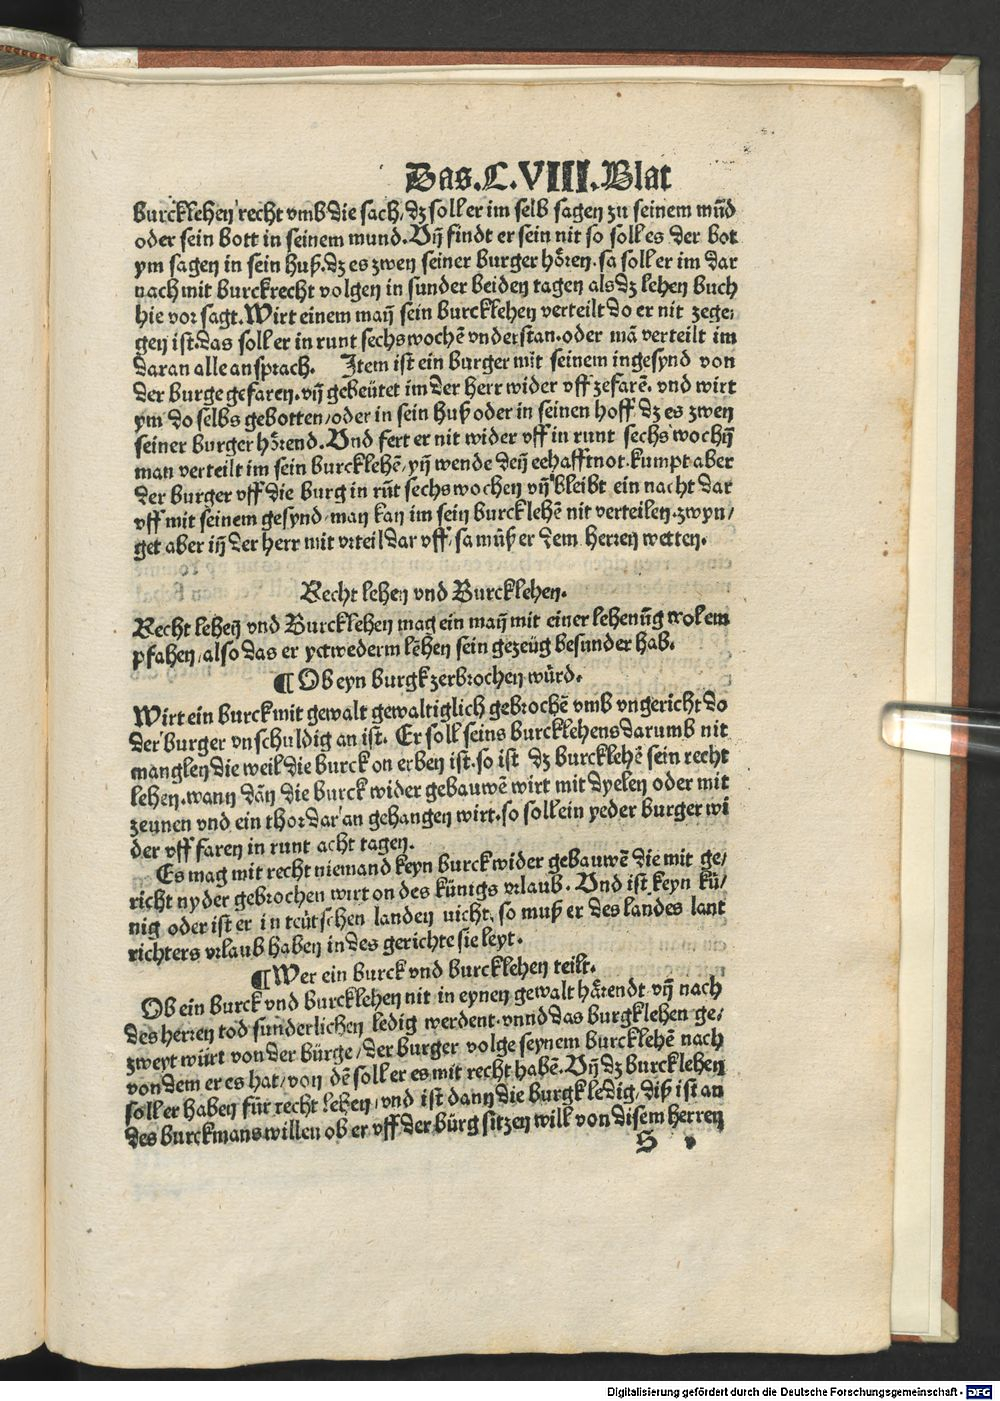 Das.C.VIII.Blat
burcklehen recht vmb die sach/ dz soll er im selb sagen zu seinem mūd
oder sein bott in seinem mund. Vn̄ findt er sein nit so soll es der bot
ym sagen in sein huß. dz es zwen seiner burger hören. sa soll er im dar
nach mit burckrecht volgen in sunder beiden tagen als dz lehen buch
hie vor sagt. Wirt einem man̄ sein burcklehen verteilt do er nit zege⸗
gen ist. das soll er in runt sechs wochē vnderstan. oder mā verteilt im
daran alle ansprach. Item ist ein burger mit seinem ingesynd von
der burge gefaren. vn̄ gebeütet im der herr wider vff zefarē. vnd wirt
ym do selbs gebotten/ oder in sein huß oder in seinen hoff dz es zwen
seiner burger hörend. Vnd fert er nit wider vff in runt sechs wochn̄
man verteilt im sein burcklehē/ yn̄ wende den̄ eehafft not. kumpt aber
der burger vff die burg in rūt sechs wochen vn̄ bleibt ein nacht dar
vff mit seinem gesynd/ man kan im sein burcklehē nit verteilen. zwyn/
get aber in̄ der herr mit vrteil dar vff/ sa müß er dem herren wetten.
Recht lehen vnd Burcklehen.
Recht lehen̄ vnd Burcklehen mag ein man̄ mit einer lehenūg wol em
pfahen/ also das er yetwederm lehen sein gezeüg besunder hab.
¶ Ob eyn burgk zerbrochen würd.
Wirt ein burck mit gewalt gewaltiglich gebrochē vmb vngericht do
der burger vnschuldig an ist. Er soll seins burcklehens darumb nit
manglen die weil die burck on erben ist. so ist dz burcklehē sein recht
lehen. wann dān die burck wider gebauwē wirt mit dyelen oder mit
zeunen vnd ein thor dar an gehangen wirt. so soll ein yeder burger wi
der vff faren in runt acht tagen.
Es mag mit recht niemand keyn burck wider gebauwē die mit ge/
richt nyder gebrochen wirt on des künigs vrlaub. Vnd ist keyn kü/
nig oder ist er in teütschen landen nicht, so muß er des landes lant
richters vrlaub haben in des gerichte sie leyt.
¶ Wer ein burck vnd burcklehen teilt.
Ob ein burck vnd burcklehen nit in eynen gewalt hörendt vn̄ nach
des herren tod sunderlichen ledig werdent. vnnd das burgklehen ge/
zweyt würt von der bürge/ der burger volge seynem burcklehē nach
von dem er es hat/ von dē soll er es mit recht habē. Vn̄ dz burcklehen
soll er haben für recht lehen/ vnd ist dann die burgk ledig/ diß ist an
des burckmans willen ob er vff der bürg sitzen will von disem herren
S v
Digitalisierung gefördert durch die Deutsche Forschungsgemeinschaft - DFG